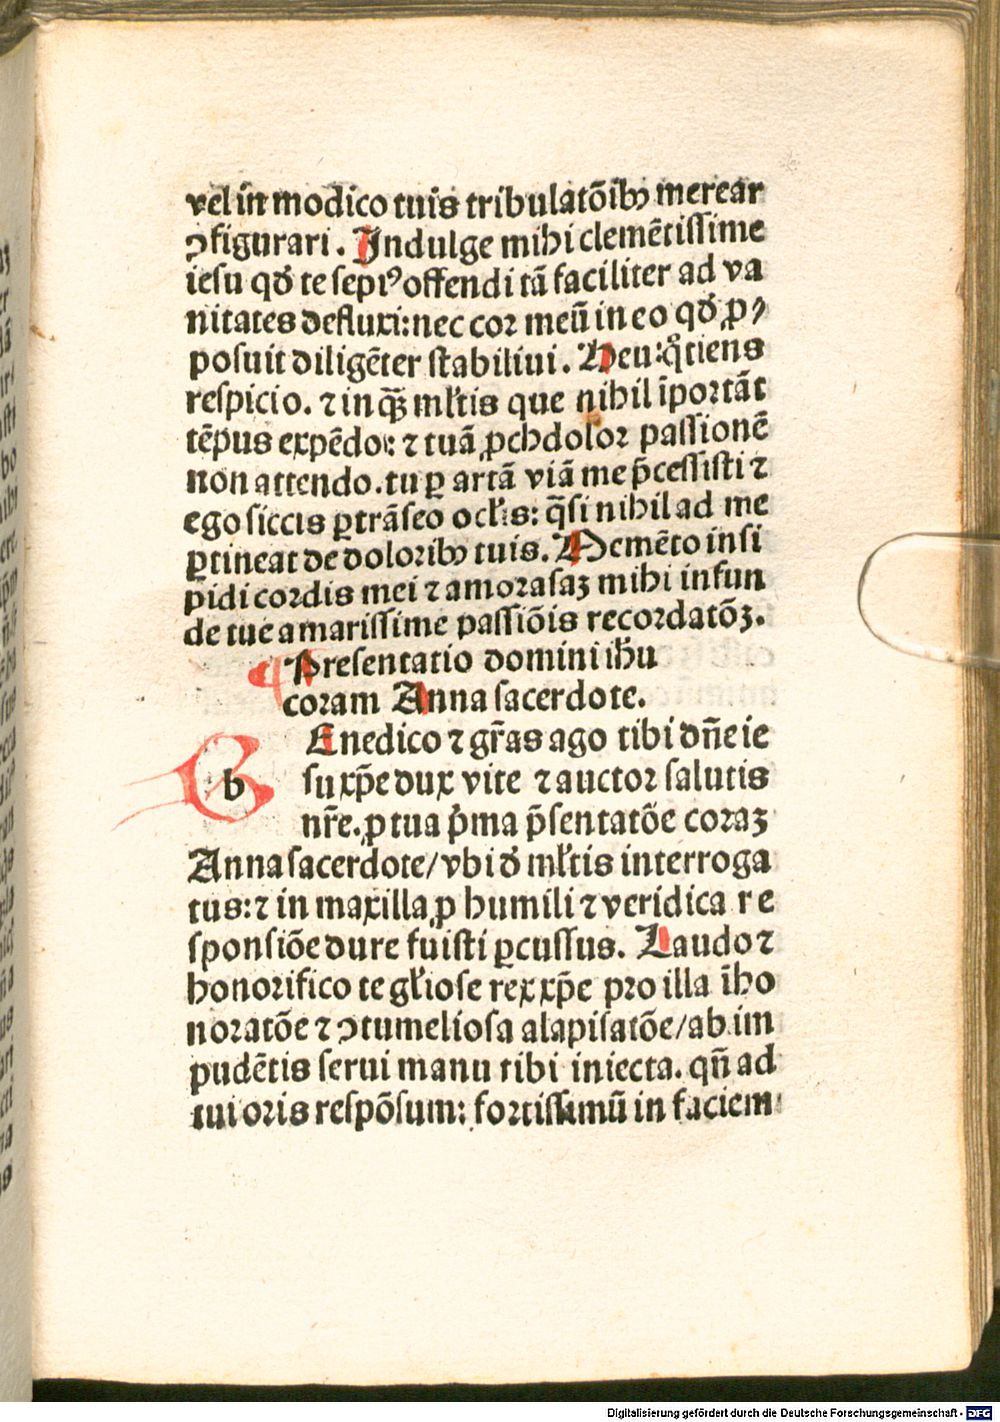 vel in modico tuis tribulatõibꝰ merear
ꝯfigurari. Indulge mihi clemẽtissime
iesu qđ te sepiꝰ offendi tã faciliter ad va
nitates defluxi: nec cor meũ in eo qđ ꝓ⸗
posuit diligẽter stabiliui. Heu: q̃tiens
respicio. ⁊ in quã ml̃tis que nihil ĩportãt
tẽpus expẽdo: ⁊ tuã ꝓch dolor passionẽ
non attendo. tu ꝑ artã viã me p̃cessisti ⁊
ego siccis ꝑtrãseo ocl̃is: q̃si nihil ad me
ꝑtineat de doloribꝰ tuis. Memẽto insi
pidi cordis mei ⁊ amorosaꝫ mihi infun
de tue amarissime passiõis recordatõꝫ.
¶ Presentatio domini ihũ
coram Anna sacerdote.
b Enedico ⁊ gr̃as ago tibi dñe ie
su xp̃e dux vite ⁊ auctor salutis
nr̃e. ꝓ tua p̃ma p̃sentatõe coraꝫ
Anna sacerdote/ vbi đ ml̃tis interroga
tus: ⁊ in maxilla ꝓ humili ⁊ veridica re
sponsiõe dure fuisti ꝑcussus. Laudo ⁊
honorifico te gl̃iose rex xp̃e pro illa ĩho
noratõe ⁊ ꝯtumeliosa alapisatõe/ ab im
pudẽtis serui manu tibi iniecta. qñ ad
tui oris respõsum: fortissimũ in faciem
Digitalisierung gefördert durch die Deutsche Forschungsgemeinschaft - DFG